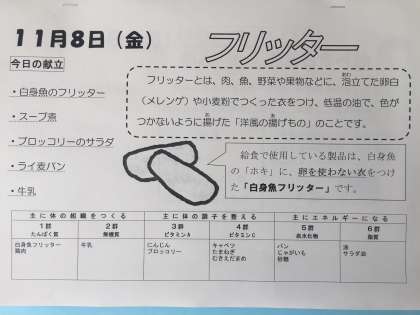 11月8日（金）
フリッター
今日の献立
・白身魚のフリッター
・スープ煮
・ブロッコリーのサラダ
・ライ麦パン
・牛乳
フリッターとは、肉、魚、野菜や果物などに、泡立てた卵白
（メレンゲ）や小麦粉でつくった衣をつけ、低温の油で、色が
つかないように揚げた「洋風の揚げもの」のことです。
給食で使用している製品は、白身魚
の「ホキ」に、卵を使わない衣をつけ
た「白身魚フリッター」です。
主に体の組織をつくる 主に体の調子を整える 主にエネルギーになる
1群 2群 3群 4群 5群 6群
たんぱく質 無機質 ビタミンA ビタミンC 炭水化物 脂質
白身魚フリッター 牛乳 にんじん キャベツ パン 油
鶏肉 ブロッコリー たまねぎ じゃがいも サラダ油
むきえだまめ 砂糖